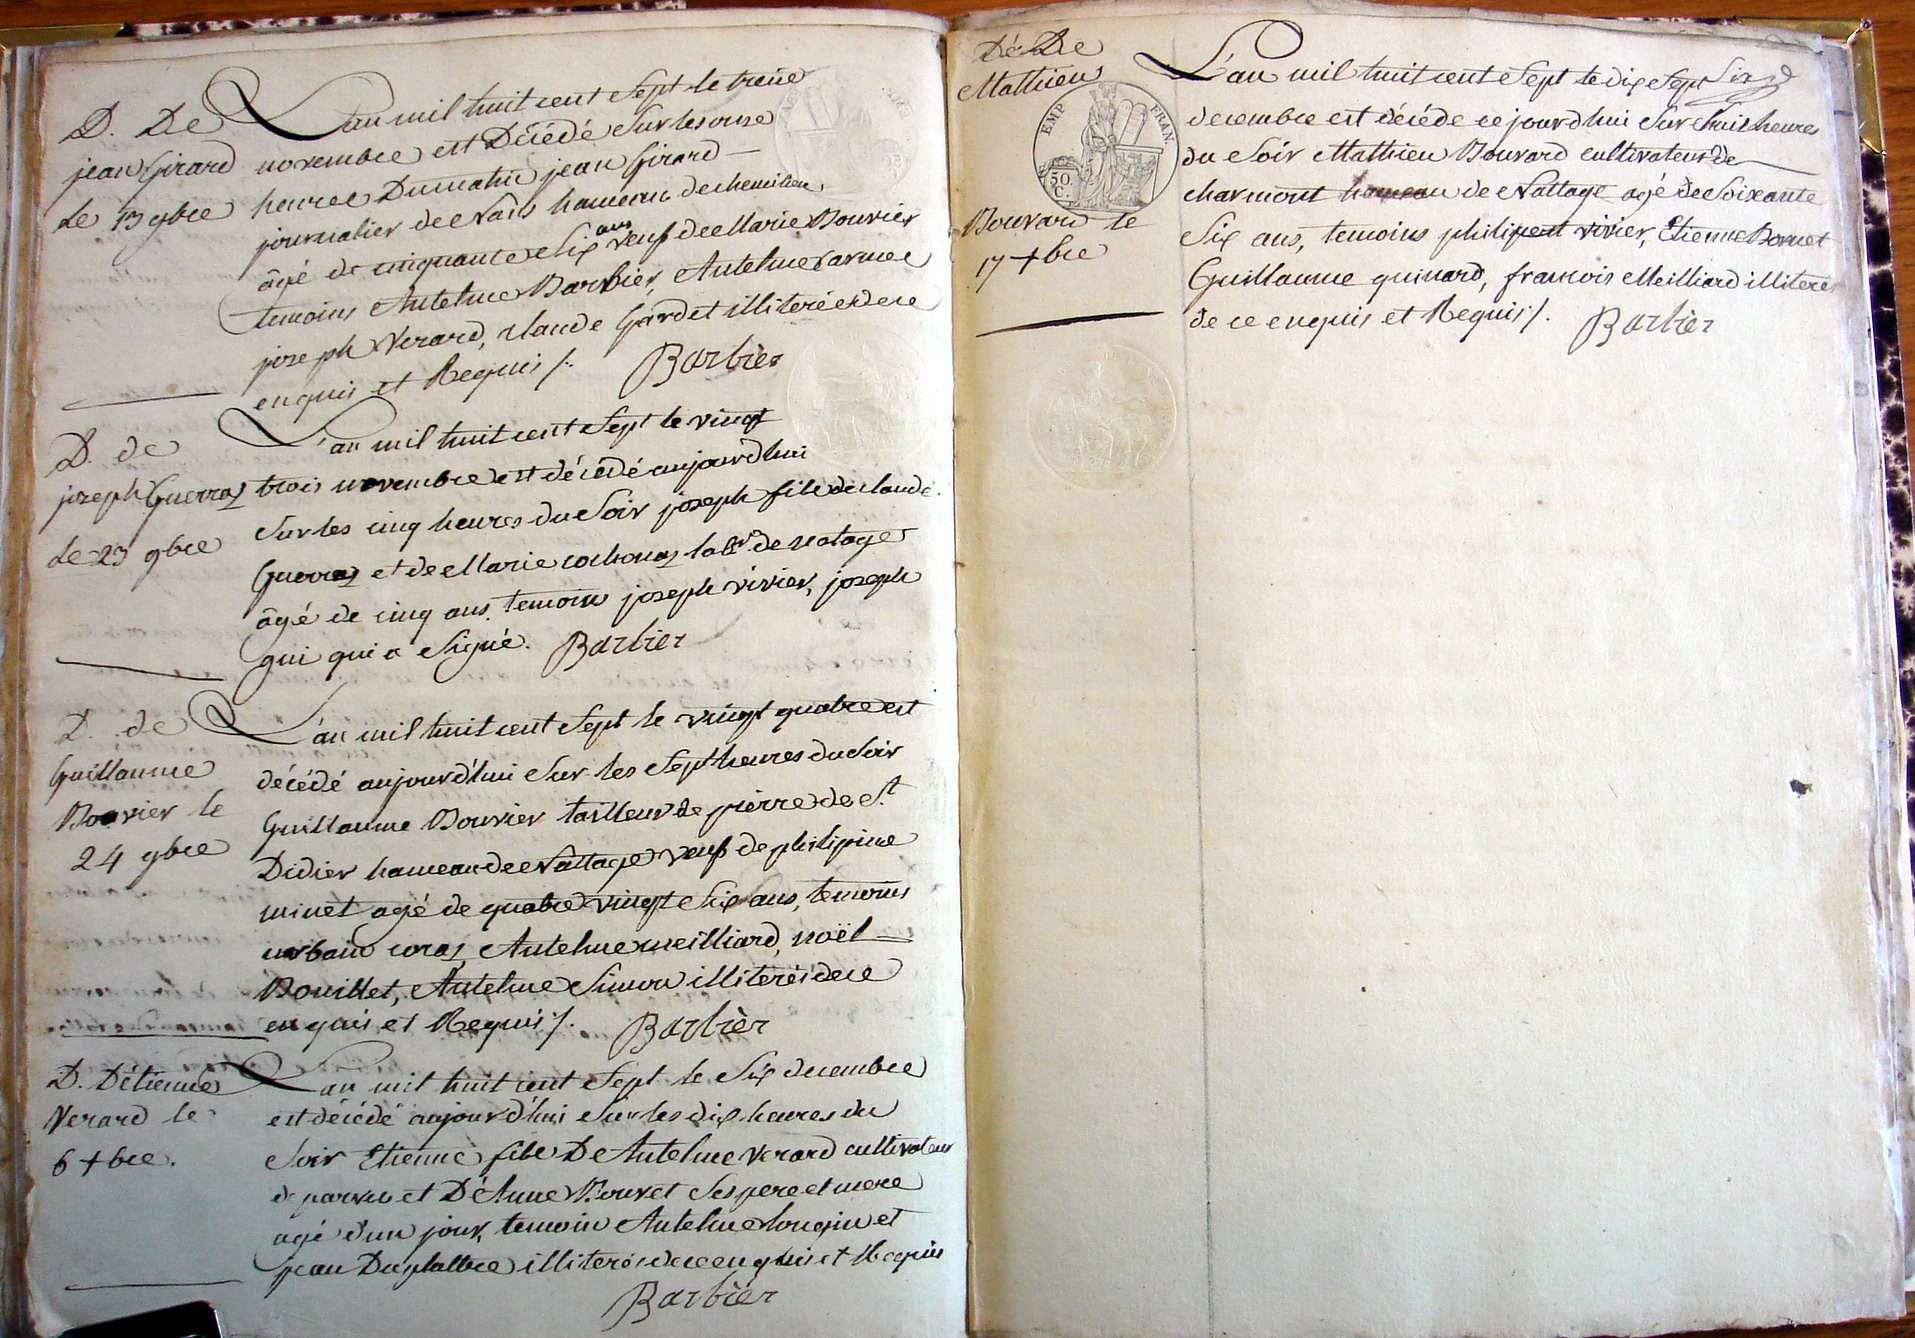 D. De
jean Girard
le 13 9bre
L'an mil huit cent Sept le treize
novembre est Décédé Sur les onze
heures Dumatin jean Girard
journalier de Nants hameau de chemilieu
âgé de cinquante Six ans veuf de Marie Bouvier
temoins Antelme Barbier, Antelme
joseph Verard, claude Gardet illiteré de ce
enquis et Requis /. Barbier
D. de
joseph Guerraz
le 23 9bre
L'an mil huit cent Sept le vingt
trois novembre est décédé aujourd'hui
Sur les cinq heures du Soir joseph fils de claude
Guerraz et de Marie cochonaz labr de natage
âgé de cinq ans, temoins joseph vivier, joseph
gui qui a Signé. Barbier
D. de
Guillaume
Bouvier le
24 9bre
L'an mil huit cent Sept le vingt quatre est
décédé aujourd'hui Sur les Sept heures du Soir
Guillaume Bouvier tailleur de pierre de St
Didier hameau de Nattage veuf de philipine
minet agé de quatre vingt Six ans, temoins
urbain coraz, Antelme meilliard, noël
Bouillet, Antelme Simon illiterés de ce
enquis et Requis /. Barbier
D. D'étienne
Verard le
6 +bre.
L'an mil huit cent Sept le Six decembre
est décédé aujourd'hui Sur les dix heures du
Soir Etienne fils D'Antelme Verard cultivateur
de parves et D'Anne Bouvet Ses pere et mere
agé d'un jour, temoin Antelme longin et
jean Duplattre illiteré de ce enquis et Requis
Barbier
Dé De
Mathieu
EMP. FRAN.
50. C.
Bouvard le
17 +bre
L'an mil huit cent Sept le dix Sept
decembre est décédé ce jourd'hui Sur huit heures
du Soir Mathieu Bouvard cultivateur de
charmont hameau de Nattage agé de Soixante
Six ans, temoins philipert vivier, Etienne Bornet
Guillaume guinard, francois Meilliard illiterés
de ce enquis et Requis /. Barbier